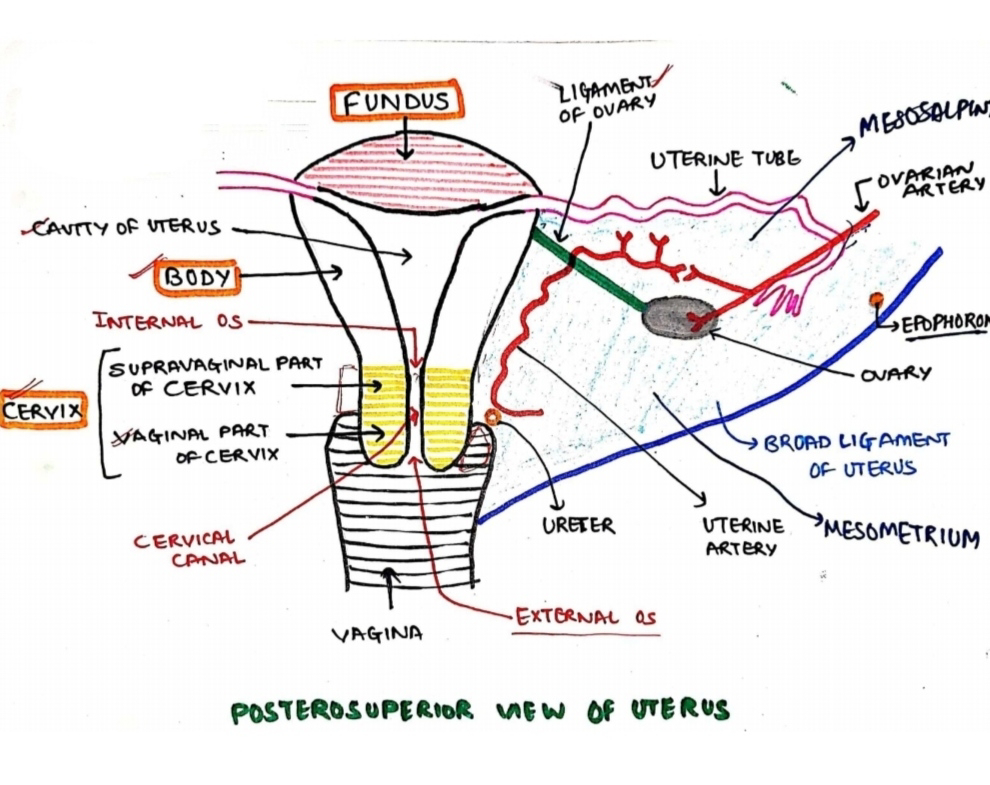 FUNDUS
LIGAMENT
OF OVARY
MESOSALPIN
UTERINE TUBE
OVARIAN
ARTERY
CAVITY OF UTERUS
BODY
INTERNAL OS
SUPRAVAGINAL PART
OF CERVIX
CERVIX
VAGINAL PART
OF CERVIX
EPOPHORON
OVARY
BROAD LIGAMENT
OF UTERUS
URETER
UTERINE
ARTERY
MESOMETRIUM
CERVICAL
CANAL
EXTERNAL OS
VAGINA
POSTEROSUPERIOR VIEW OF UTERUS